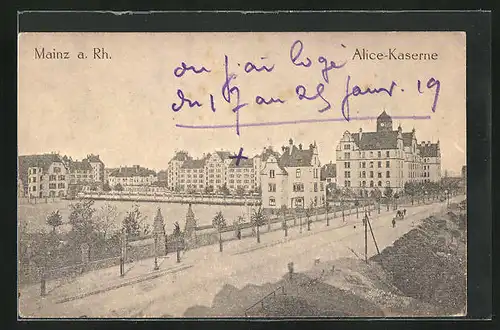 Mainz a. Rh.
Alice-Kaserne
ou j'ai logé
du 17 au 25 janv. 19